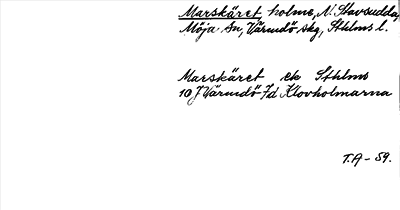 Marskäret holme, N. Stavsudda,
Möja sn, Värmdö skg, Sthlms l.
Marskäret ek Sthlms
10 J Värmdö Fd Klovholmarna
T.A - 59.